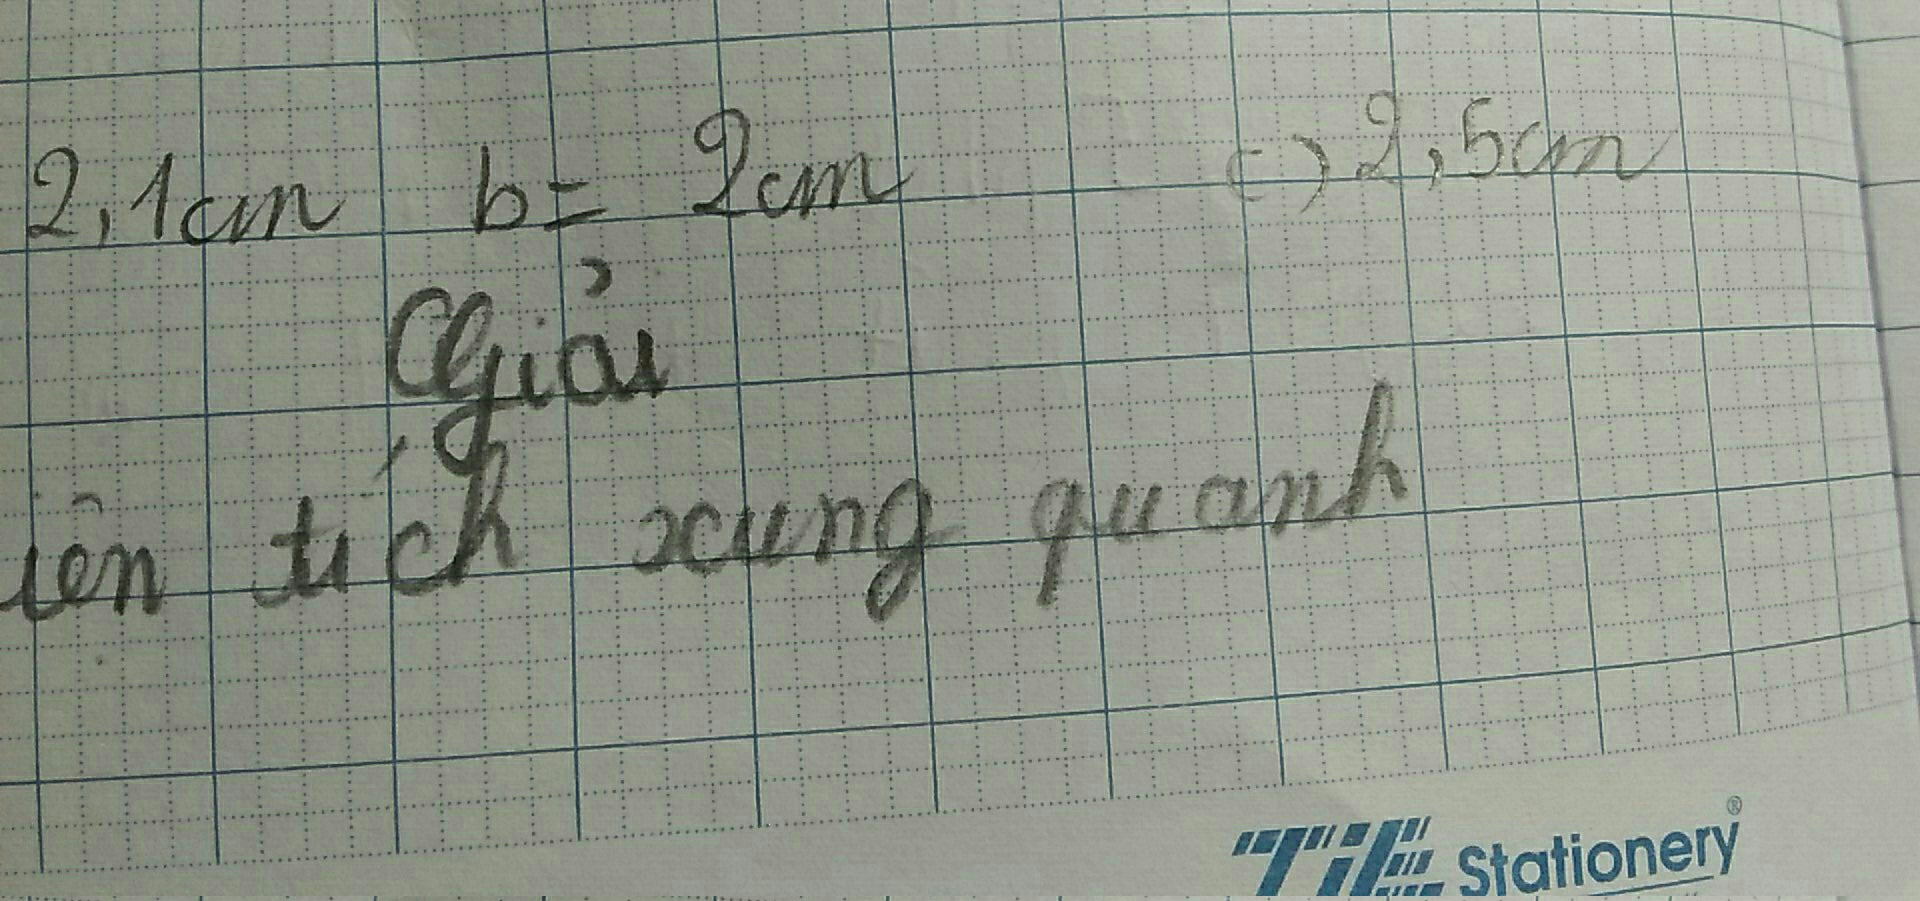 2,1cm b= 2cm c) 2,5cm
Giải
iện tích xung quanh
TiE Stationery®